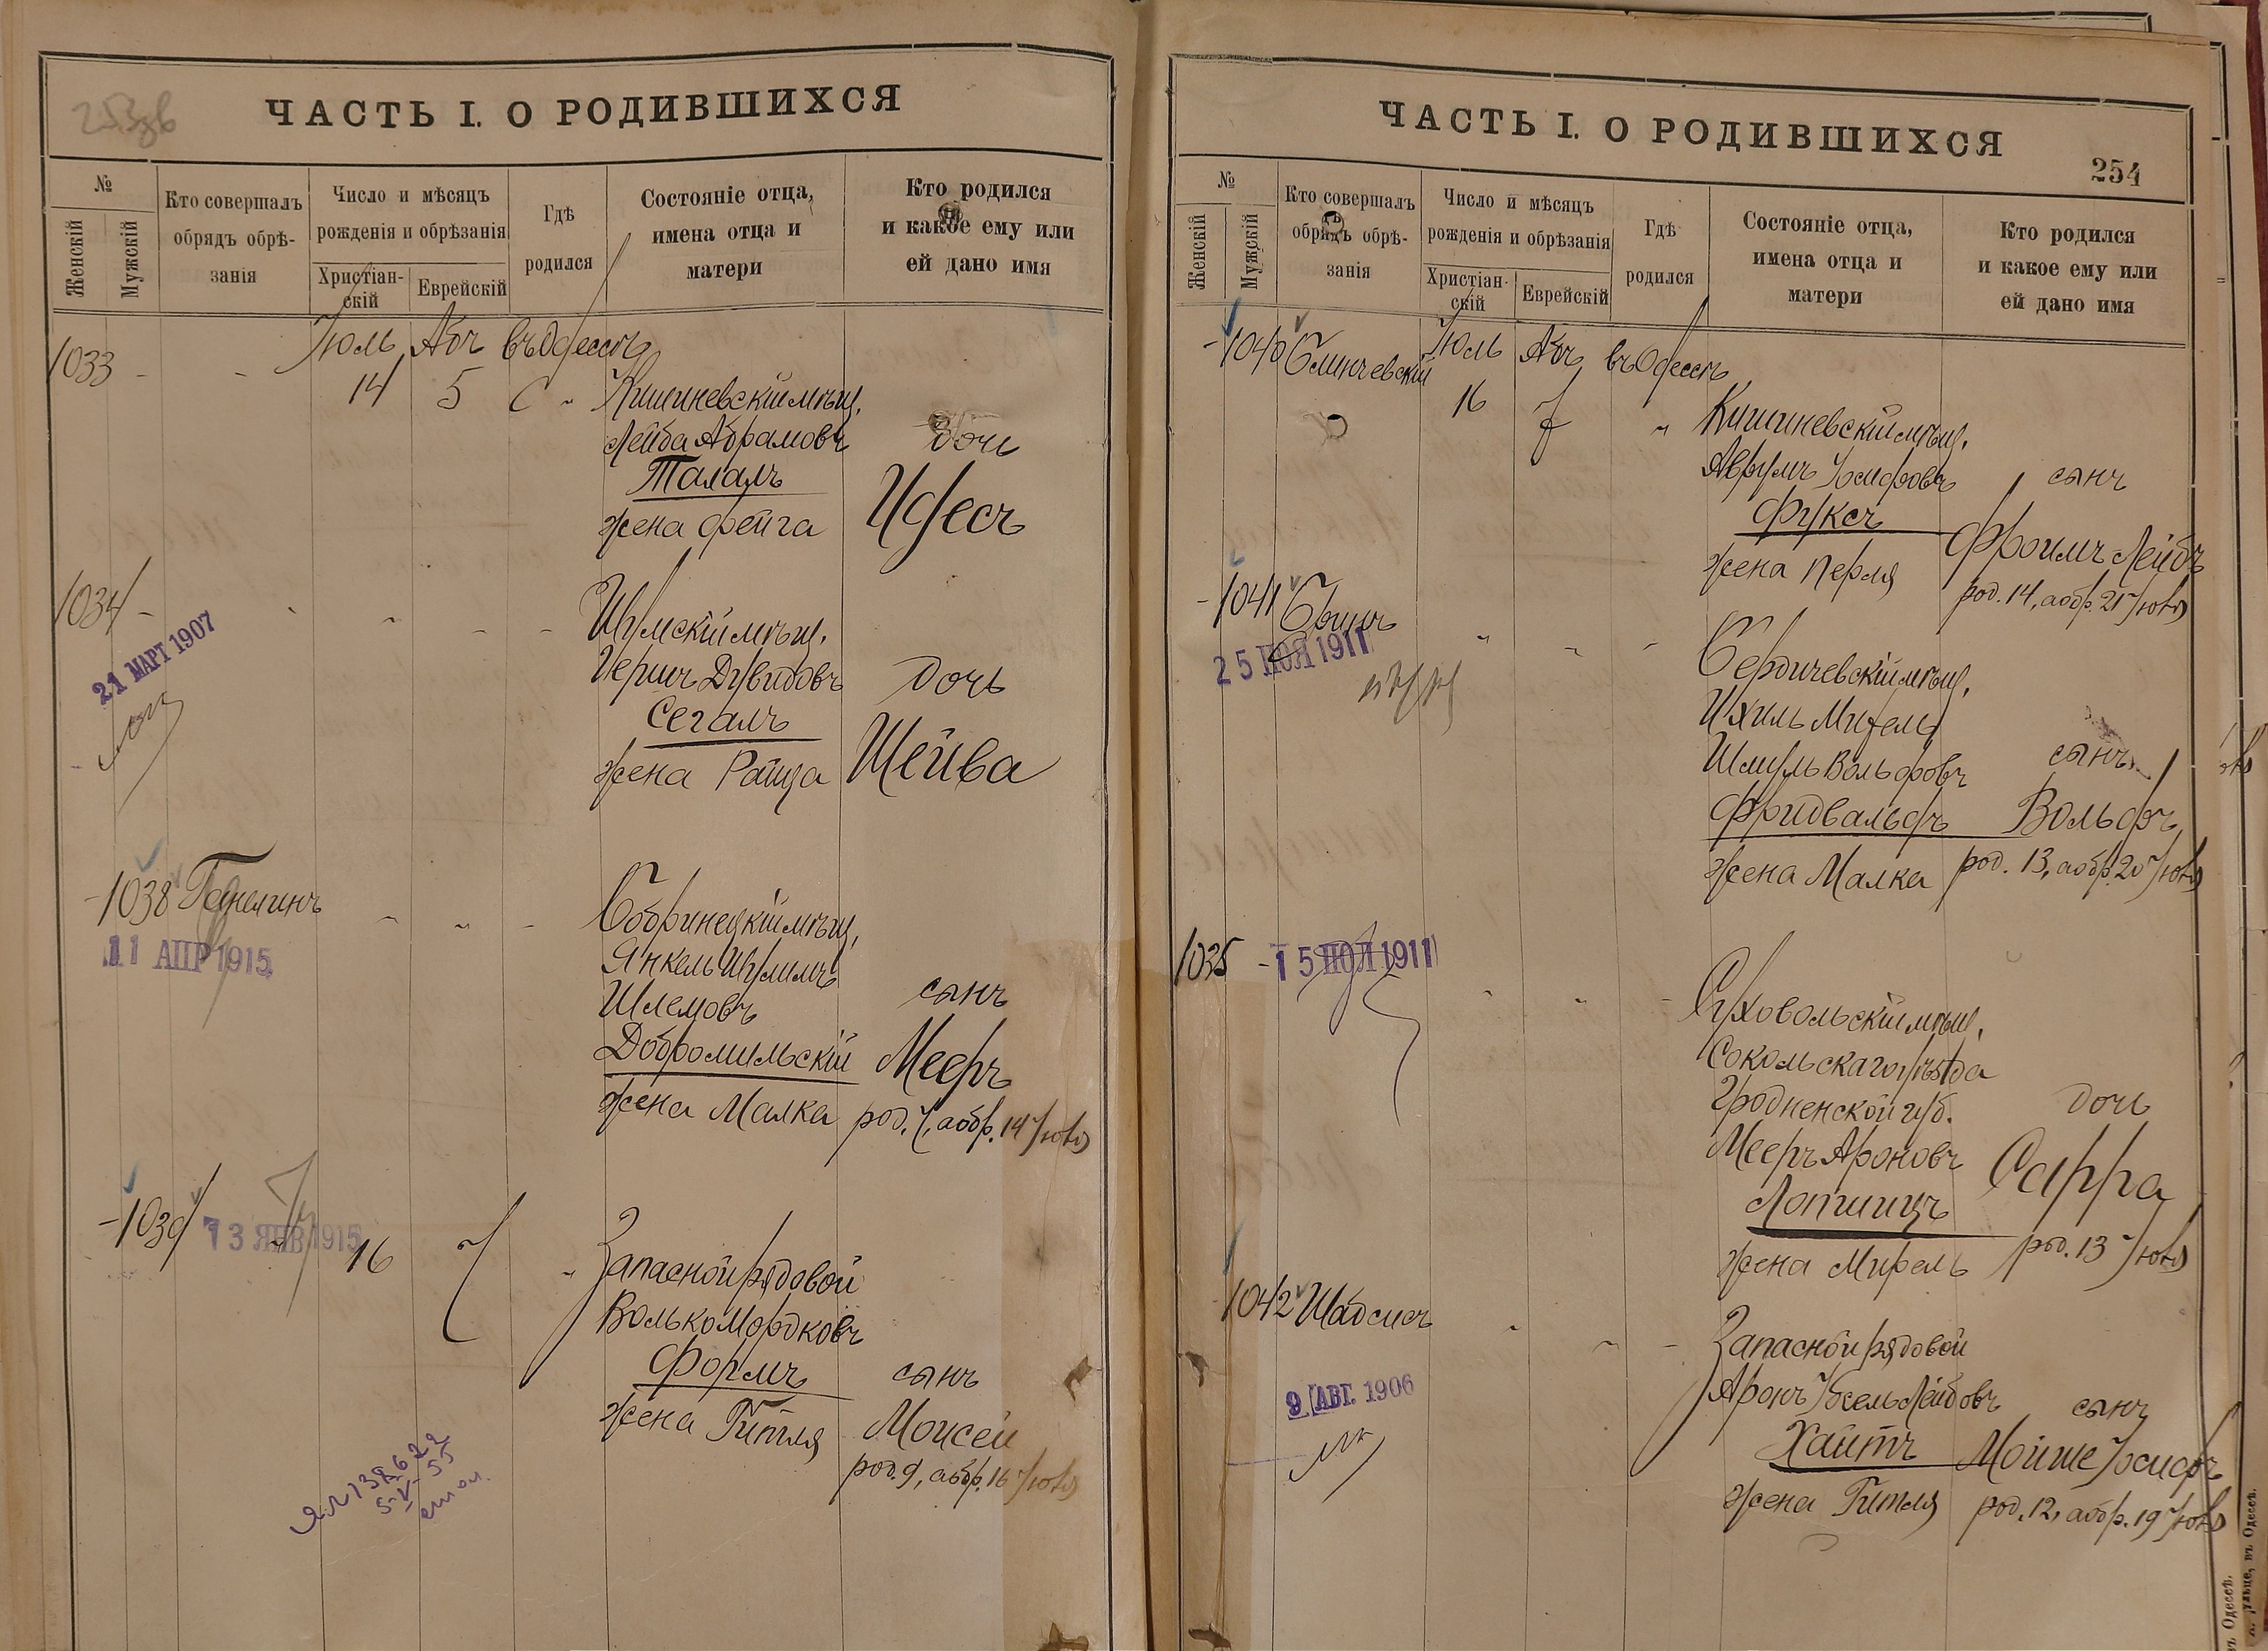 ЧАСТЬ I. О РОДИВШИХСЯ
№
Женскій
Мужскій
Кто совершалъ
обрядъ обрѣ-
занія
Число и мѣсяцъ
рожденія и обрѣзанія
Христіан-
скій
Еврейскій
Гдѣ
родился
Состояніе отца,
имена отца и
матери
Кто родился
и какое ему или
ей дано имя
1033 - - Іюль Абъ въ Одессѣ
14 5 Кишиневскій мѣщ.
Лейба Абрамовъ дочь
Талалъ
жена Фейга Идесъ
1034 -
21 МАРТ 1907
Шумскій мѣщ.
Гершъ Дувидовъ дочь
Сегалъ
жена Раиза Шейва
-1038 Ганелинъ
11 АПР 1915
Бобринецкій мѣщ.
Янкель
Шлемовъ сынъ
Добромильскій Мееръ
жена Малка род. 7, а обр. 14 Іюля
-1039
13 ЯНВ 1915
16 7 Запасной рядовой
Волько Мордковъ
Формъ сынъ
жена Гитля Моисей
род. 9, а обр. 16 Іюля
ЧАСТЬ I. О РОДИВШИХСЯ
254
№
Женскій
Мужскій
Кто совершалъ
обрядъ обрѣ-
занія
Число и мѣсяцъ
рожденія и обрѣзанія
Христіан-
скій
Еврейскій
Гдѣ
родился
Состояніе отца,
имена отца и
матери
Кто родился
и какое ему или
ей дано имя
-1040 Іюль Абъ въ Одессѣ
16 7 " Кишиневскій мѣщ.
Аврумъ Іосифовъ сынъ
Фуксъ
жена Перля Фроимъ Лейбъ
род. 14, а обр. 21 Іюля
-1041
25 НОЯ 1911
Бердичевскій мѣщ.
Ихиль Михель
Шмуль Вольфовъ сынъ
Фридвальдъ Вольфъ
жена Малка род. 13, а обр. 20 Іюля
1035 -
15 ІЮЛ 1911
Суховольскій мѣщ.
Сокольскаго уѣзда
Гродненской губ. дочь
Мееръ Ароновъ Сарра
Лопшицъ
жена Мирель род. 13 Іюля
1042
9 АВГ. 1906
Запасной рядовой
Аронъ Іосель Лейбовъ сынъ
Хаитъ Мойше Іосифъ
жена Гитля род. 12, а обр. 19 Іюля